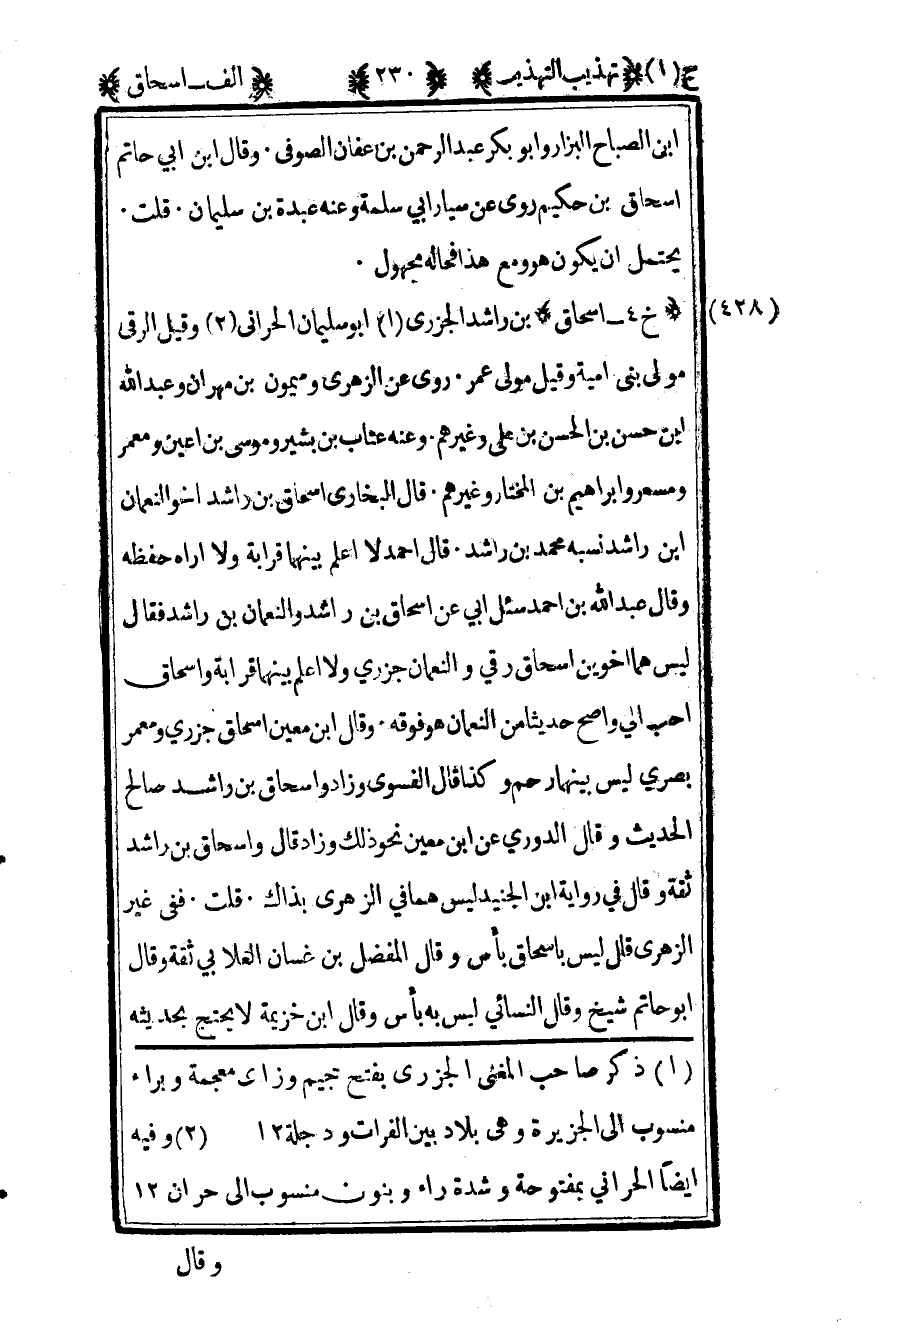 ج(١) ﴿تهذيب التهذيب﴾ ﴿٢٣٠﴾ ﴿الف ـ اسحاق﴾
ابن الصباح البزار وابو بكر عبد الرحمن بن عفان الصوفى · وقال ابن ابي حاتم
اسحاق بن حكيم روى عن سيار ابي سلمة وعنه عبدة بن سليمان · قلت ·
يحتمل ان يكون هو ومع هذا فحاله مجهول ·
(٤٢٨) ﴿ خ ٤ ـ اسحاق ﴾ بن راشد الجزرى (١) ابو سليمان الحرانى (٢) وقيل الرقى
مولى بنى امية وقيل مولى عمر · روى عن الزهرى وميمون بن مهران وعبد الله
ابن حسن بن الحسن بن على وغيرهم · وعنه عتاب بن بشير وموسى بن اعين ومعمر
ومسعر وابراهيم بن المختار وغيرهم · قال البخارى اسحاق بن راشد اخو النعمان
ابن راشد نسبه محمد بن راشد · قال احمد لا اعلم بينهما قرابة ولا اراه حفظه
وقال عبد الله بن احمد سئل ابي عن اسحاق بن راشد والنعمان بن راشد فقال
ليس هما اخوين اسحاق رقي و النعمان جزري ولا اعلم بينهما قرابة واسحاق
احب الي واصح حديثا من النعمان هو فوقه · وقال ابن معين اسحاق جزري ومعمر
بصري ليس بينهما رحم و كذا قال الفسوى وزاد واسحاق بن راشد صالح
الحديث و قال الدوري عن ابن معين نحو ذلك وزاد قال واسحاق بن راشد
ثقة و قال في رواية ابن الجنيد ليس هما في الزهرى بذاك · قلت · ففى غير
الزهرى قال ليس باسحاق بأس و قال المفضل بن غسان الغلابي ثقة وقال
ابو حاتم شيخ وقال النسائي ليس به بأس وقال ابن خزيمة لا يحتج بحديثه
(١) ذكر صاحب المغنى الجزرى بفتح جيم وزاى معجمة و براء
منسوب الى الجزيرة و هى بلاد بين الفرات و دجلة ١٢ (٢) و فيه
ايضاً الحراني بمفتوحة و شدة راء و بنون منسوب الى حران ١٢
و قال